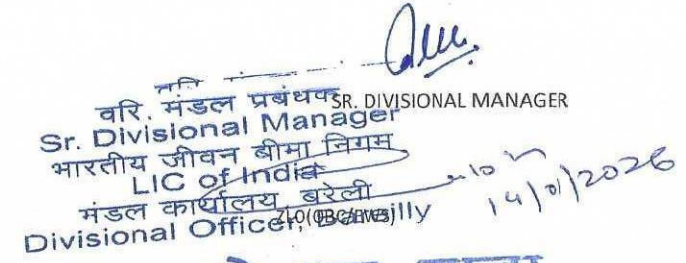 वरि. मंडल प्रबंधक SR. DIVISIONAL MANAGER
Sr. Divisional Manager
भारतीय जीवन बीमा निगम
LIC of India
मंडल कार्यालय, बरेली
Divisional Officer, Bareilly ZLO(OBC/EWS)
14/01/2026